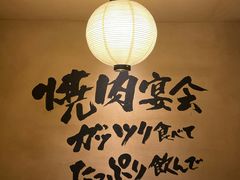 焼肉宴会
ガッツリ食べて
たっぷり飲んで